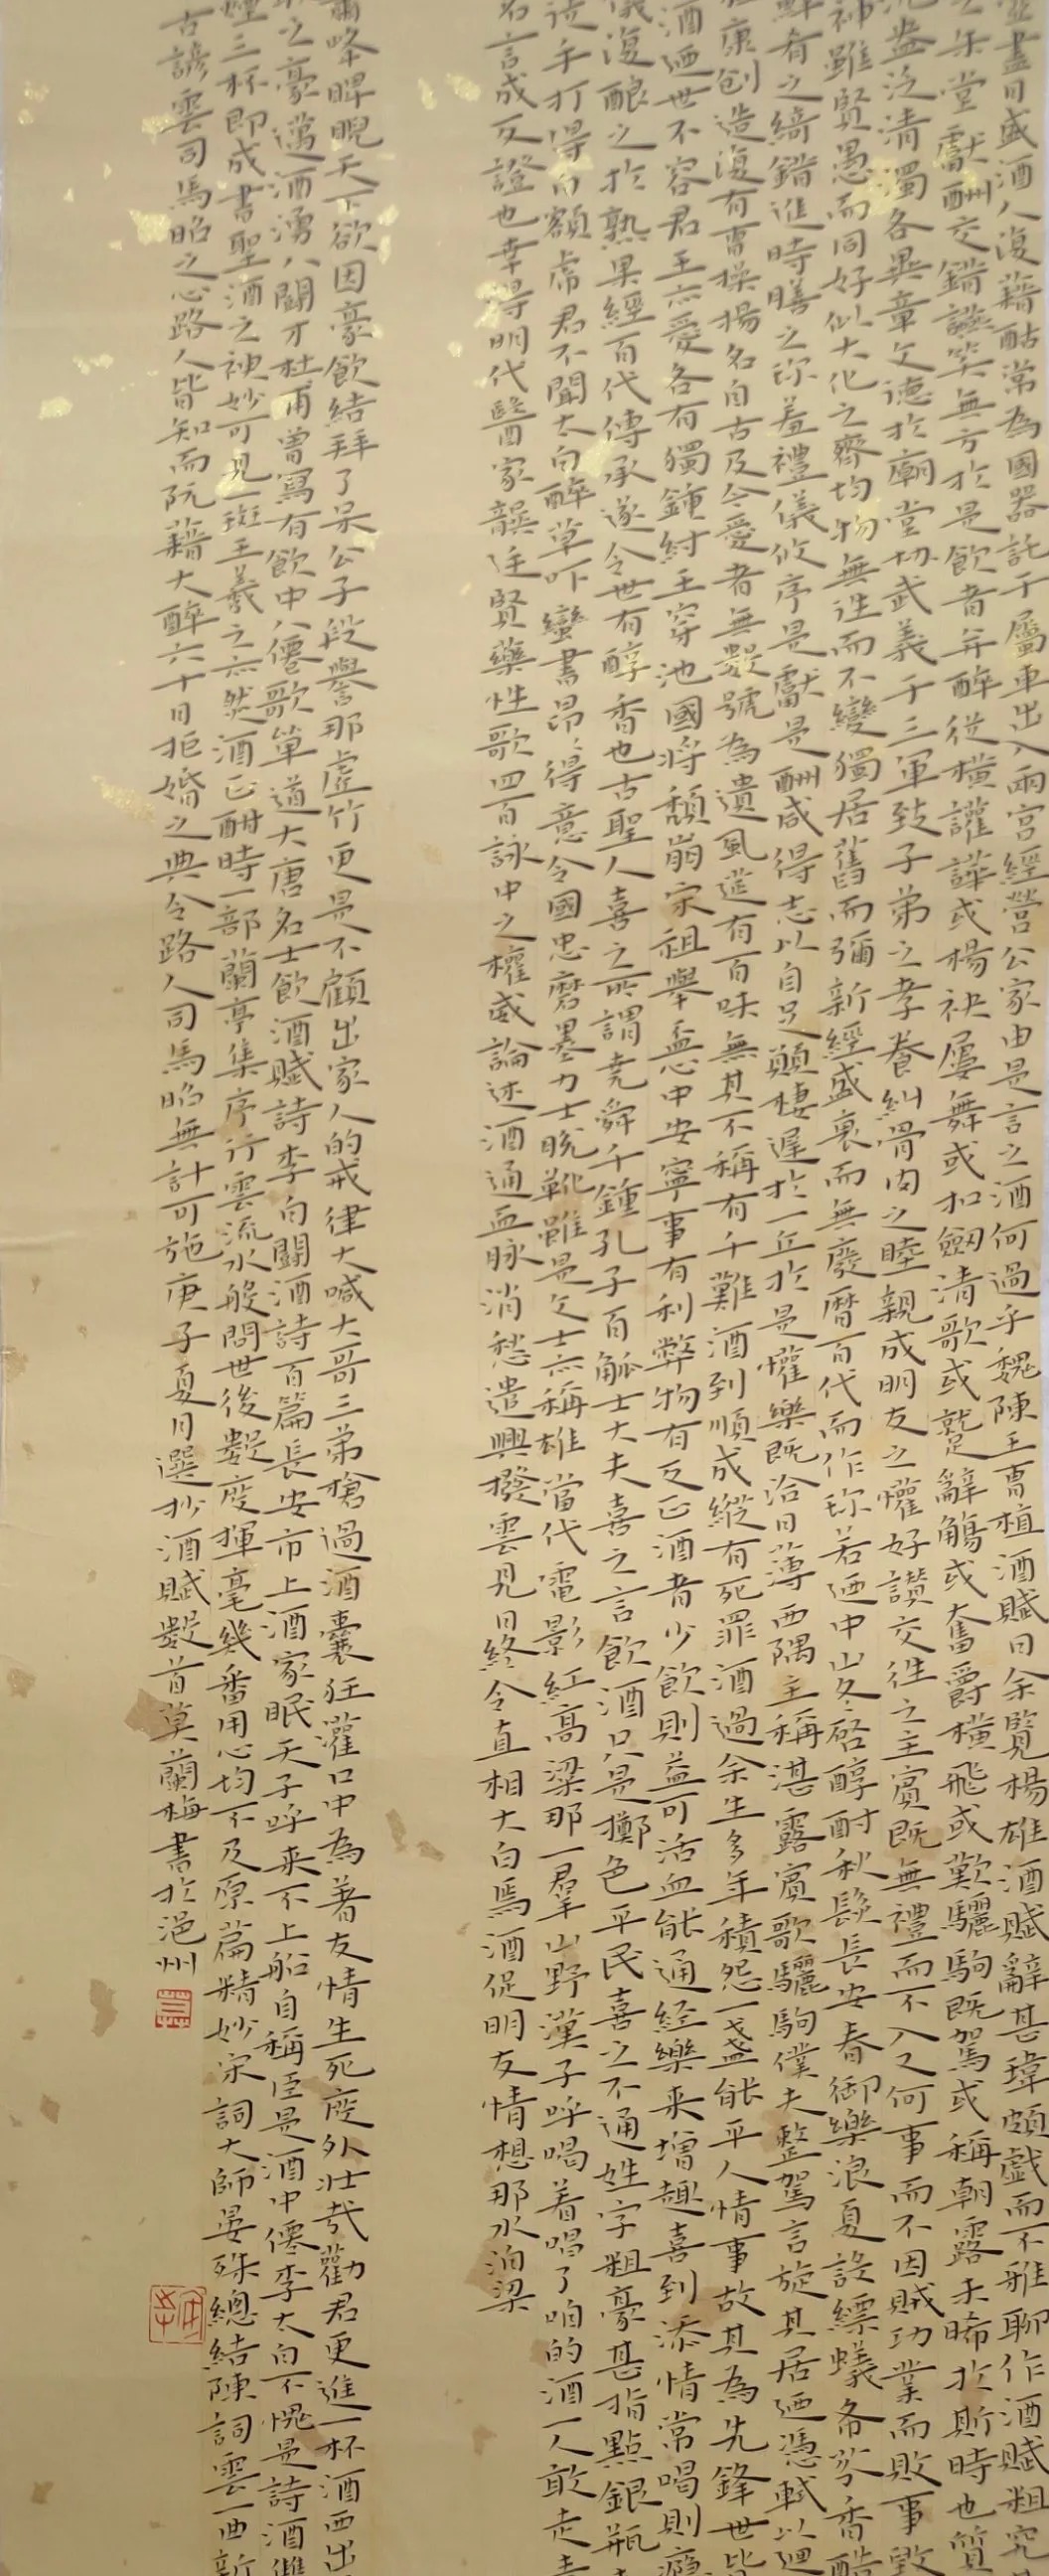 壺盡日盛酒人復藉酤常為國器託于屬車出入兩宮經營公家由是言之酒何過乎魏陳王曹植酒賦曰余覽楊雄酒賦辭甚瑋頗戲而不雅聊作酒賦粗究
朱堂獻酬交錯讌笑無方於是飲者并醉從橫讙譁或楊袂屢舞或扣劍清歌或蹙辭觴或奮爵橫飛或歎驪駒既駕或稱朝露未晞於斯時也質
盎泛清濁各異章文德於廟堂協武義于三軍致子弟之孝養糾骨肉之睦親成朋友之懽好讚交往之主賓既無禮而不入又何事而不因賊功業而敗事毀
神雖賢愚而同好似大化之齊均物無往而不變獨居舊而彌新經盛衰而無廢曆百代而作珍若迺中山冬啓醇酎秋發長安春御樂浪夏設縹蟻各芬香酷
鮮肴之綺錯進時膳之珍羞禮儀攸序是獻是酬咸得志以自足顛棲遲於一丘於是懽樂既洽日薄西隅主稱湛露賓歌驪駒僕夫整駕言旋其居迺憑軾以迴
康創造復有曹操揚名自古及今愛者無數號為遺風迷有百味無其不稱有千難酒到順成縱有死罪酒過余生多年積怨一盞能平人情事故其為先鋒世皆
酒迺世不容君王亦愛各有獨鍾紂王穿池國將頹崩宋祖舉盃忠中安寧事有利弊物有反正酒者少飲則益可活血能通經樂来增趣喜到添情常喝則癮
儀復釀之於熟果經百代傳承遂令世有醇香也古聖人喜之所謂堯舜千鍾孔子百觚士大夫喜之言飲酒只是擲色平民喜之不通姓字粗豪甚指點銀瓶
徒手打得白額虎君不聞太白醉草吓蠻書昂昂得意令國忠磨墨力士脫靴雖是文士亦稱雄當代電影紅高粱那一羣山野漢子呼喝着唱了咱的酒一人敢走
名言成反證也幸得明代醫家龔廷賢藥性歌四百詠中之權威論述酒通血脉消愁遣興撥雲見日終令直相大白焉酒促朋友情想那水泊梁
肅峰睥睨天下欲因豪飲結拜了呆公子段譽那虛竹更是不顧出家人的戒律大喊大哥三弟搶過酒囊狂灌口中為着友情生死度外壯哉勸君更進一杯酒西出
之豪邁酒湧八鬭才杜甫曾寫有飲中八僊歌單道大唐名士飲酒賦詩李白鬭酒詩百篇長安市上酒家眠天子呼来不上船自稱臣是酒中僊李太白不愧是詩酒雙
煙三杯即成書聖酒之神妙可見一斑王羲之亦然酒正酣時一部蘭亭集序行雲流水般問世後數度揮毫幾番用心均不及原篇精妙宋詞大師晏殊總結陳詞雲一曲新
古諺雲司馬昭之心路人皆知而阮藉大醉六十日拒婚之典令路人司馬昭無計可施庚子夏月選抄酒賦數首莫蘭梅書於浥州